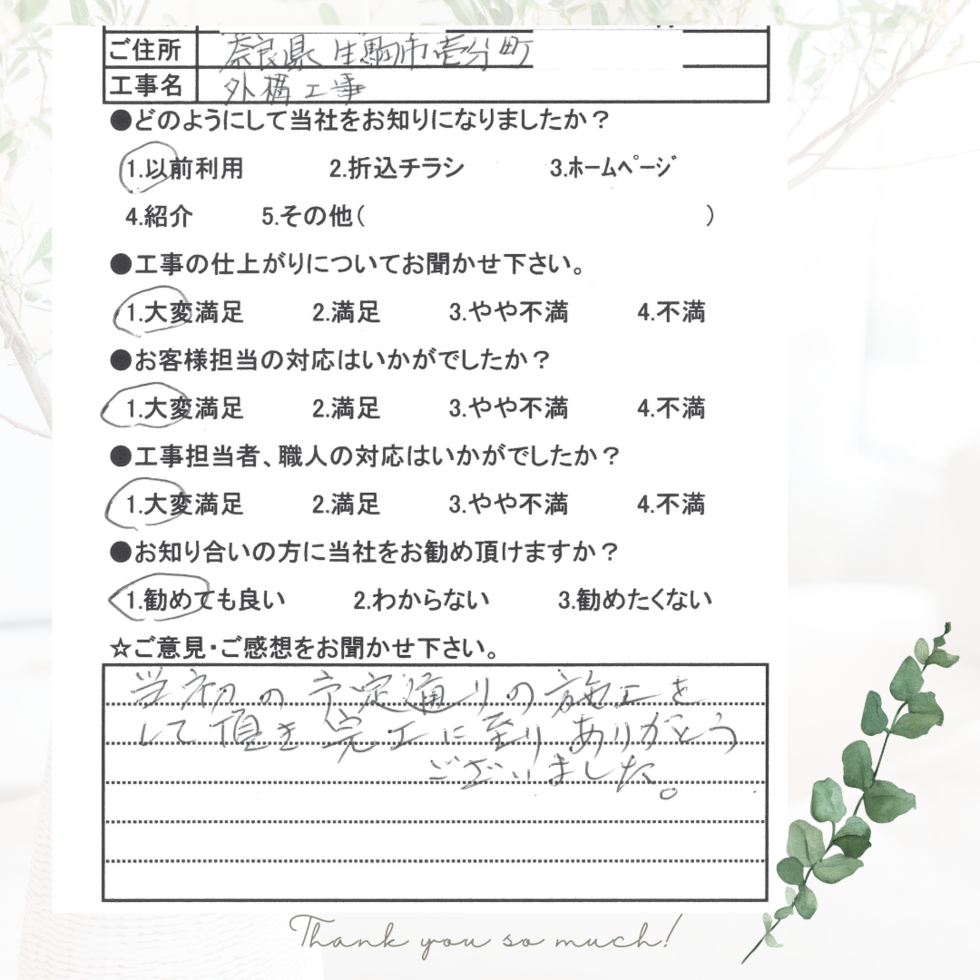 ご住所 奈良県生駒市壱分町
工事名 外構工事
●どのようにして当社をお知りになりましたか？
1.以前利用 2.折込チラシ 3.ﾎｰﾑﾍﾟｰｼﾞ
4.紹介 5.その他( )
●工事の仕上がりについてお聞かせ下さい。
1.大変満足 2.満足 3.やや不満 4.不満
●お客様担当の対応はいかがでしたか？
1.大変満足 2.満足 3.やや不満 4.不満
●工事担当者、職人の対応はいかがでしたか？
1.大変満足 2.満足 3.やや不満 4.不満
●お知り合いの方に当社をお勧め頂けますか？
1.勧めても良い 2.わからない 3.勧めたくない
☆ご意見・ご感想をお聞かせ下さい。
当初の予定通りの施工を
して頂き完工に至りありがとう
ございました。
Thank you so much!